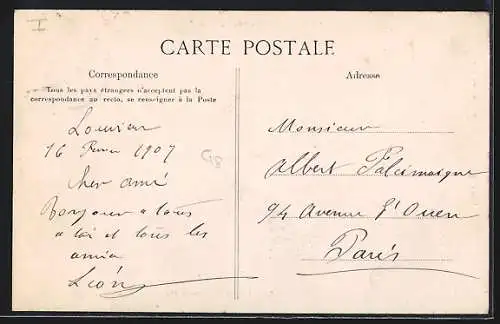 CARTE POSTALE
Correspondance
Tous les pays étrangers n'acceptent pas la
correspondance au recto, se renseigner à la Poste
Louviers
16 Fevrier 1907
Cher ami
Bonjour a tous
a toi et tous les
amis
Léon
Adresse
Monsieur
Albert
94 Avenue St Ouen
Paris